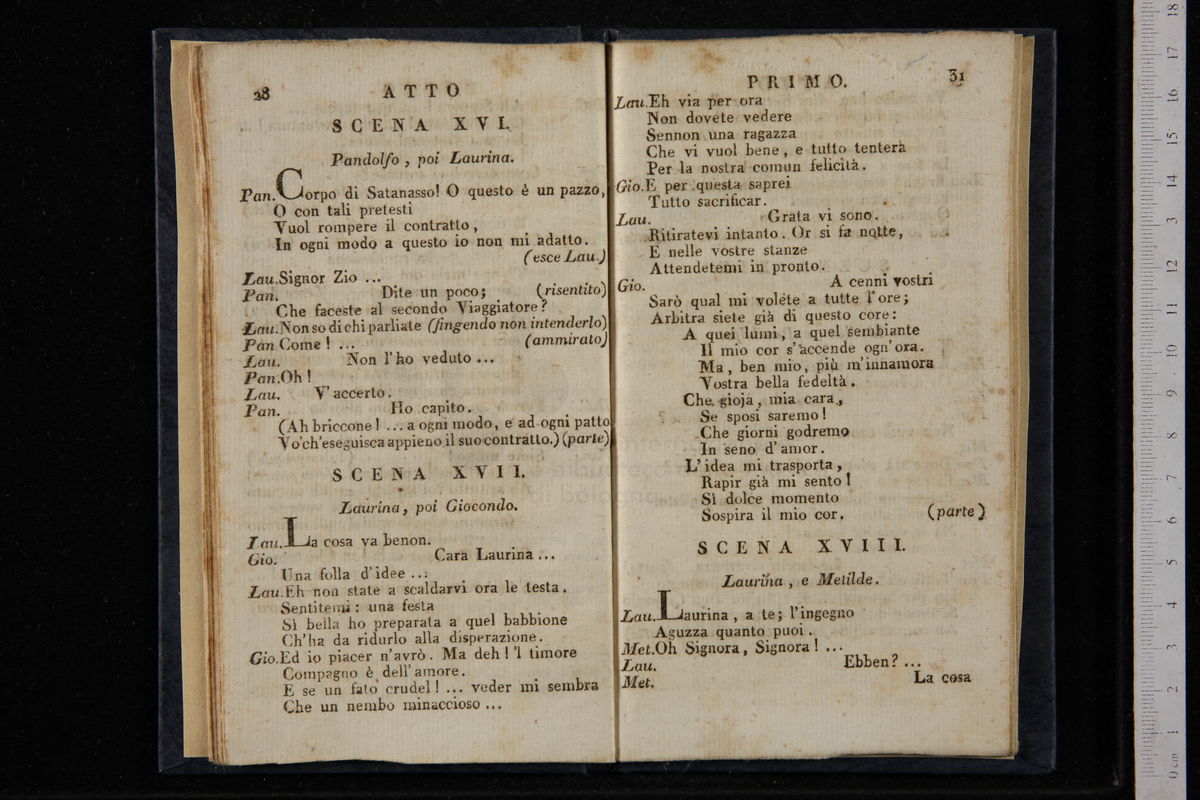 28 ATTO
SCENA XVI.
Pandolfo, poi Laurina.
Pan. Corpo di Satanasso! O questo è un pazzo,
O con tali pretesti
Vuol rompere il contratto,
In ogni modo a questo io non mi adatto.
(esce Lau.)
Lau. Signor Zio ...
Pan. Dite un poco; (risentito)
Che faceste al secondo Viaggiatore?
Lau. Non so di chi parliate (fingendo non intenderlo)
Pan Come! ... (ammirato)
Lau. Non l'ho veduto ...
Pan. Oh!
Lau. V'accerto.
Pan. Ho capito.
(Ah briccone! ... a ogni modo, e ad ogni patto
Vo'ch'eseguisca appieno il suo contratto.) (parte)
SCENA XVII.
Laurina, poi Giocondo.
Lau. La cosa va benon.
Gio. Cara Laurina ...
Una folla d'idee ...
Lau. Eh non state a scaldarvi ora le testa.
Sentitemi: una festa
Sì bella ho preparata a quel babbione
Ch'ha da ridurlo alla disperazione.
Gio. Ed io piacer n'avrò. Ma deh! 'l timore
Compagno è dell'amore.
E se un fato crudel! ... veder mi sembra
Che un nembo minaccioso ...
PRIMO. 31
Lau. Eh via per ora
Non dovete vedere
Sennon una ragazza
Che vi vuol bene, e tutto tenterà
Per la nostra comun felicità.
Gio. E per questa saprei
Tutto sacrificar.
Lau. Grata vi sono.
Ritiratevi intanto. Or si fa notte,
E nelle vostre stanze
Attendetemi in pronto.
Gio. A cenni vostri
Sarò qual mi voléte a tutte l'ore;
Arbitra siete già di questo core:
A quei lumi, a quel sembiante
Il mio cor s'accende ogn'ora.
Ma, ben mio, più m'innamora
Vostra bella fedeltà.
Che gioja, mia cara,
Se sposi saremo!
Che giorni godremo
In seno d'amor.
L'idea mi trasporta,
Rapir già mi sento!
Sì dolce momento
Sospira il mio cor. (parte)
SCENA XVIII.
Laurina, e Metilde.
Lau. Laurina, a te; l'ingegno
Aguzza quanto puoi.
Met. Oh Signora, Signora! ...
Lau. Ebben? ...
Met. La cosa